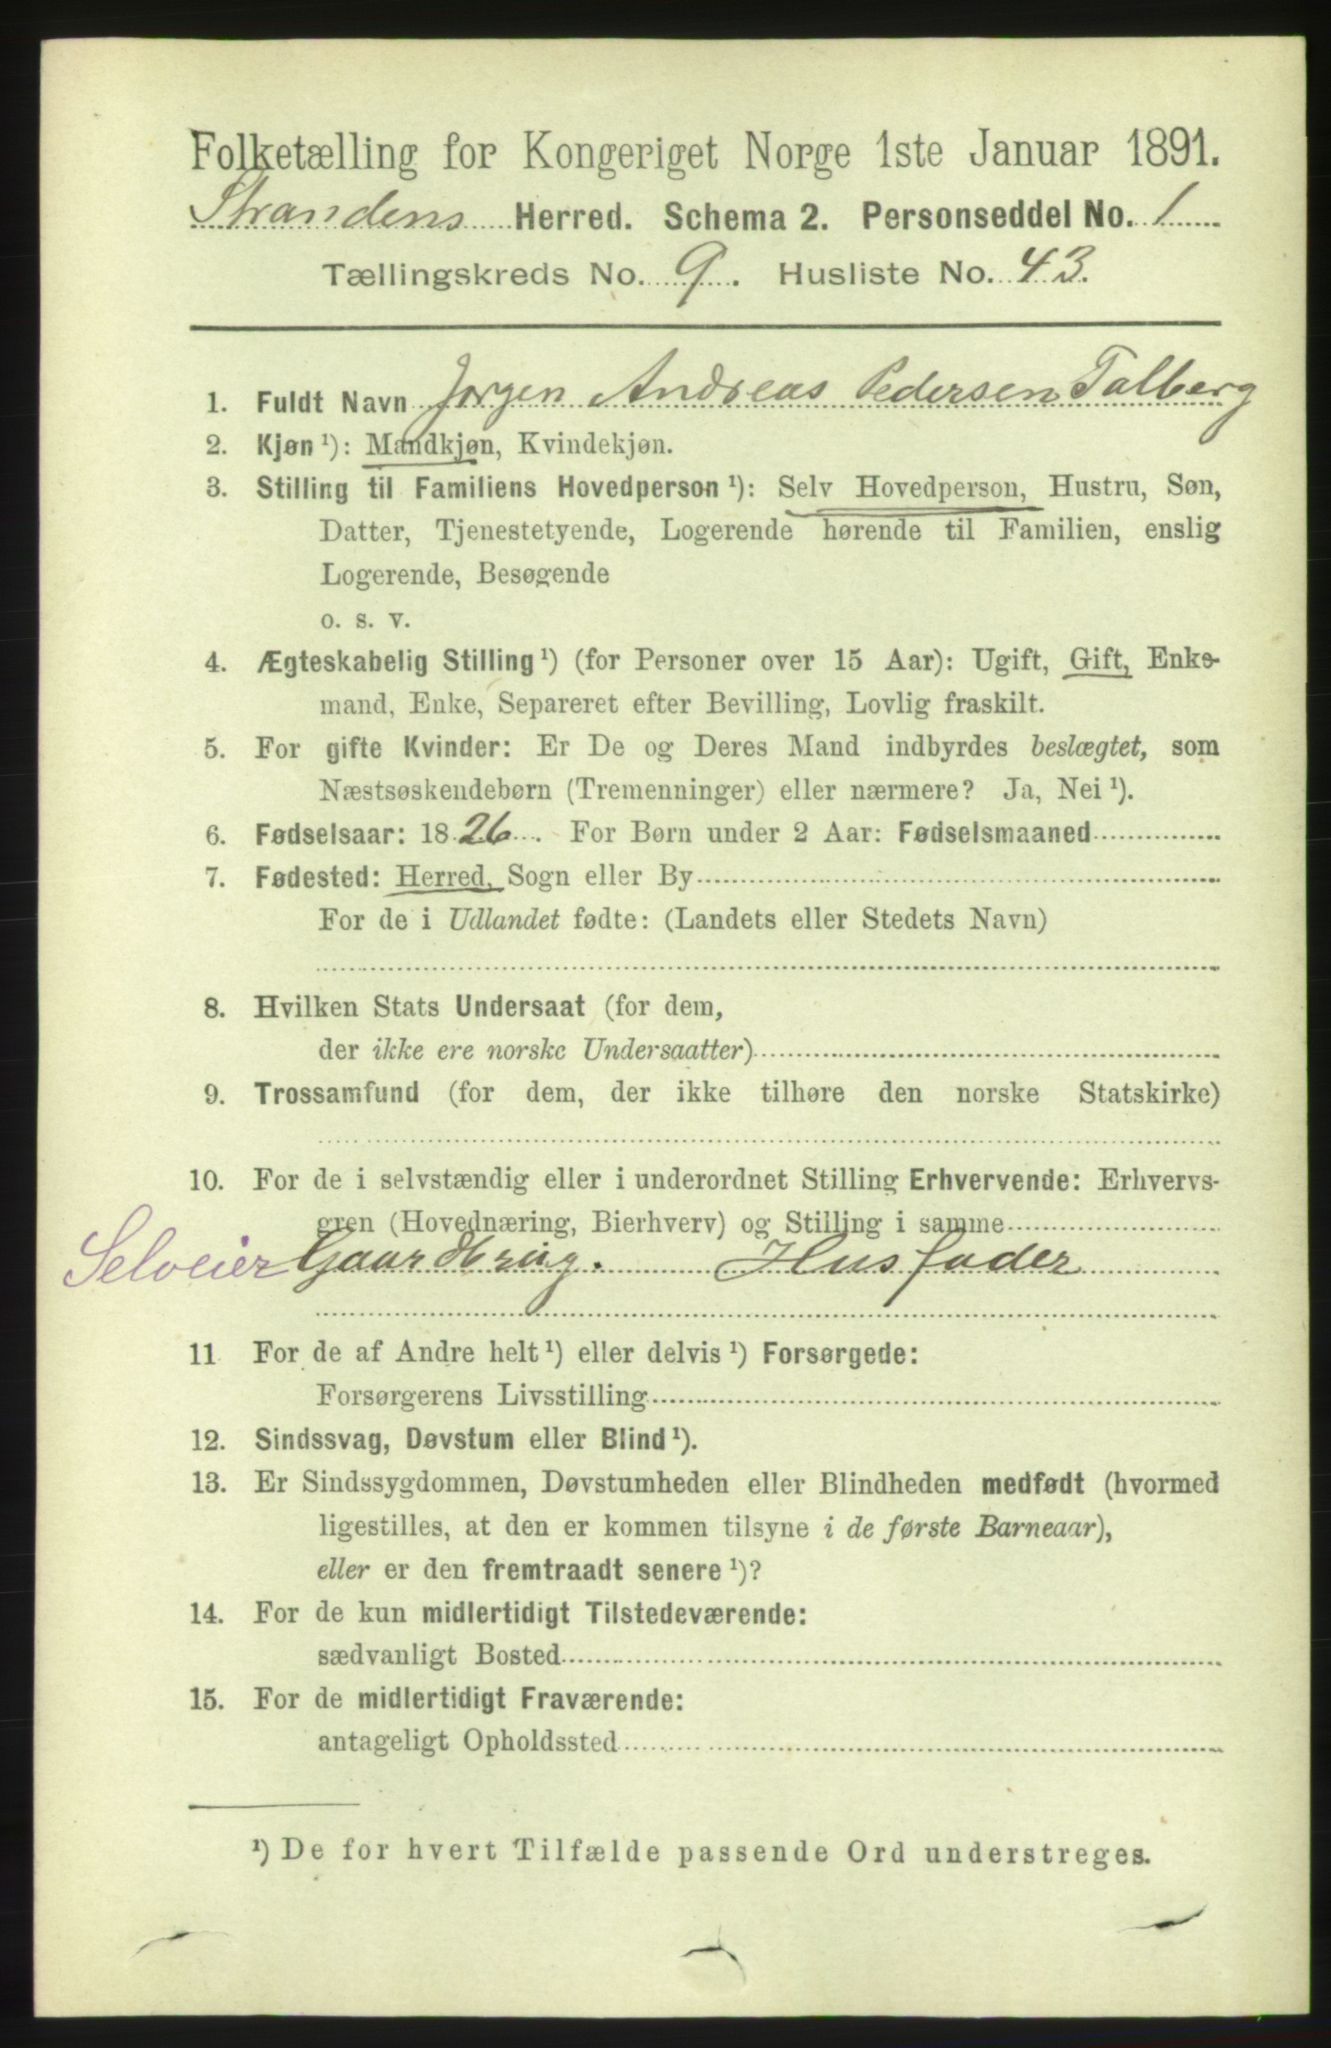 Folketælling for Kongeriget Norge 1ste Januar 1891.
Strandens Herred. Schema 2. Personseddel No. 1
Tællingskreds No. 9. Husliste No. 43.
1. Fuldt Navn Jørgen Andreas Pedersen Talberg
2. Kjøn ¹): Mandkjøn, Kvindekjøn.
3. Stilling til Familiens Hovedperson ¹): Selv Hovedperson, Hustru, Søn,
Datter, Tjenestetyende, Logerende hørende til Familien, enslig
Logerende, Besøgende
o. s. v.
4. Ægteskabelig Stilling ¹) (for Personer over 15 Aar): Ugift, Gift, Enke-
mand, Enke, Separeret efter Bevilling, Lovlig fraskilt.
5. For gifte Kvinder: Er De og Deres Mand indbyrdes beslægtet, som
Næstsøskendebørn (Tremenninger) eller nærmere? Ja, Nei ¹).
6. Fødselsaar: 1826. For Børn under 2 Aar: Fødselsmaaned
7. Fødested: Herred, Sogn eller By
For de i Udlandet fødte: (Landets eller Stedets Navn)
8. Hvilken Stats Undersaat (for dem,
der ikke ere norske Undersaatter)
9. Trossamfund (for dem, der ikke tilhøre den norske Statskirke)
10. For de i selvstændig eller i underordnet Stilling Erhvervende: Erhvervs-
gren (Hovednæring, Bierhverv) og Stilling i samme
Selveier Gaardbrug. Husfader
11 For de af Andre helt ¹) eller delvis ¹) Forsørgede:
Forsørgerens Livsstilling
12. Sindssvag, Døvstum eller Blind ¹).
13. Er Sindssygdommen, Døvstumheden eller Blindheden medfødt (hvormed
ligestilles, at den er kommen tilsyne i de første Barneaar),
eller er den fremtraadt senere ¹)?
14. For de kun midlertidigt Tilstedeværende:
sædvanligt Bosted
15. For de midlertidigt Fraværende:
antageligt Opholdssted
¹) De for hvert Tilfælde passende Ord understreges.